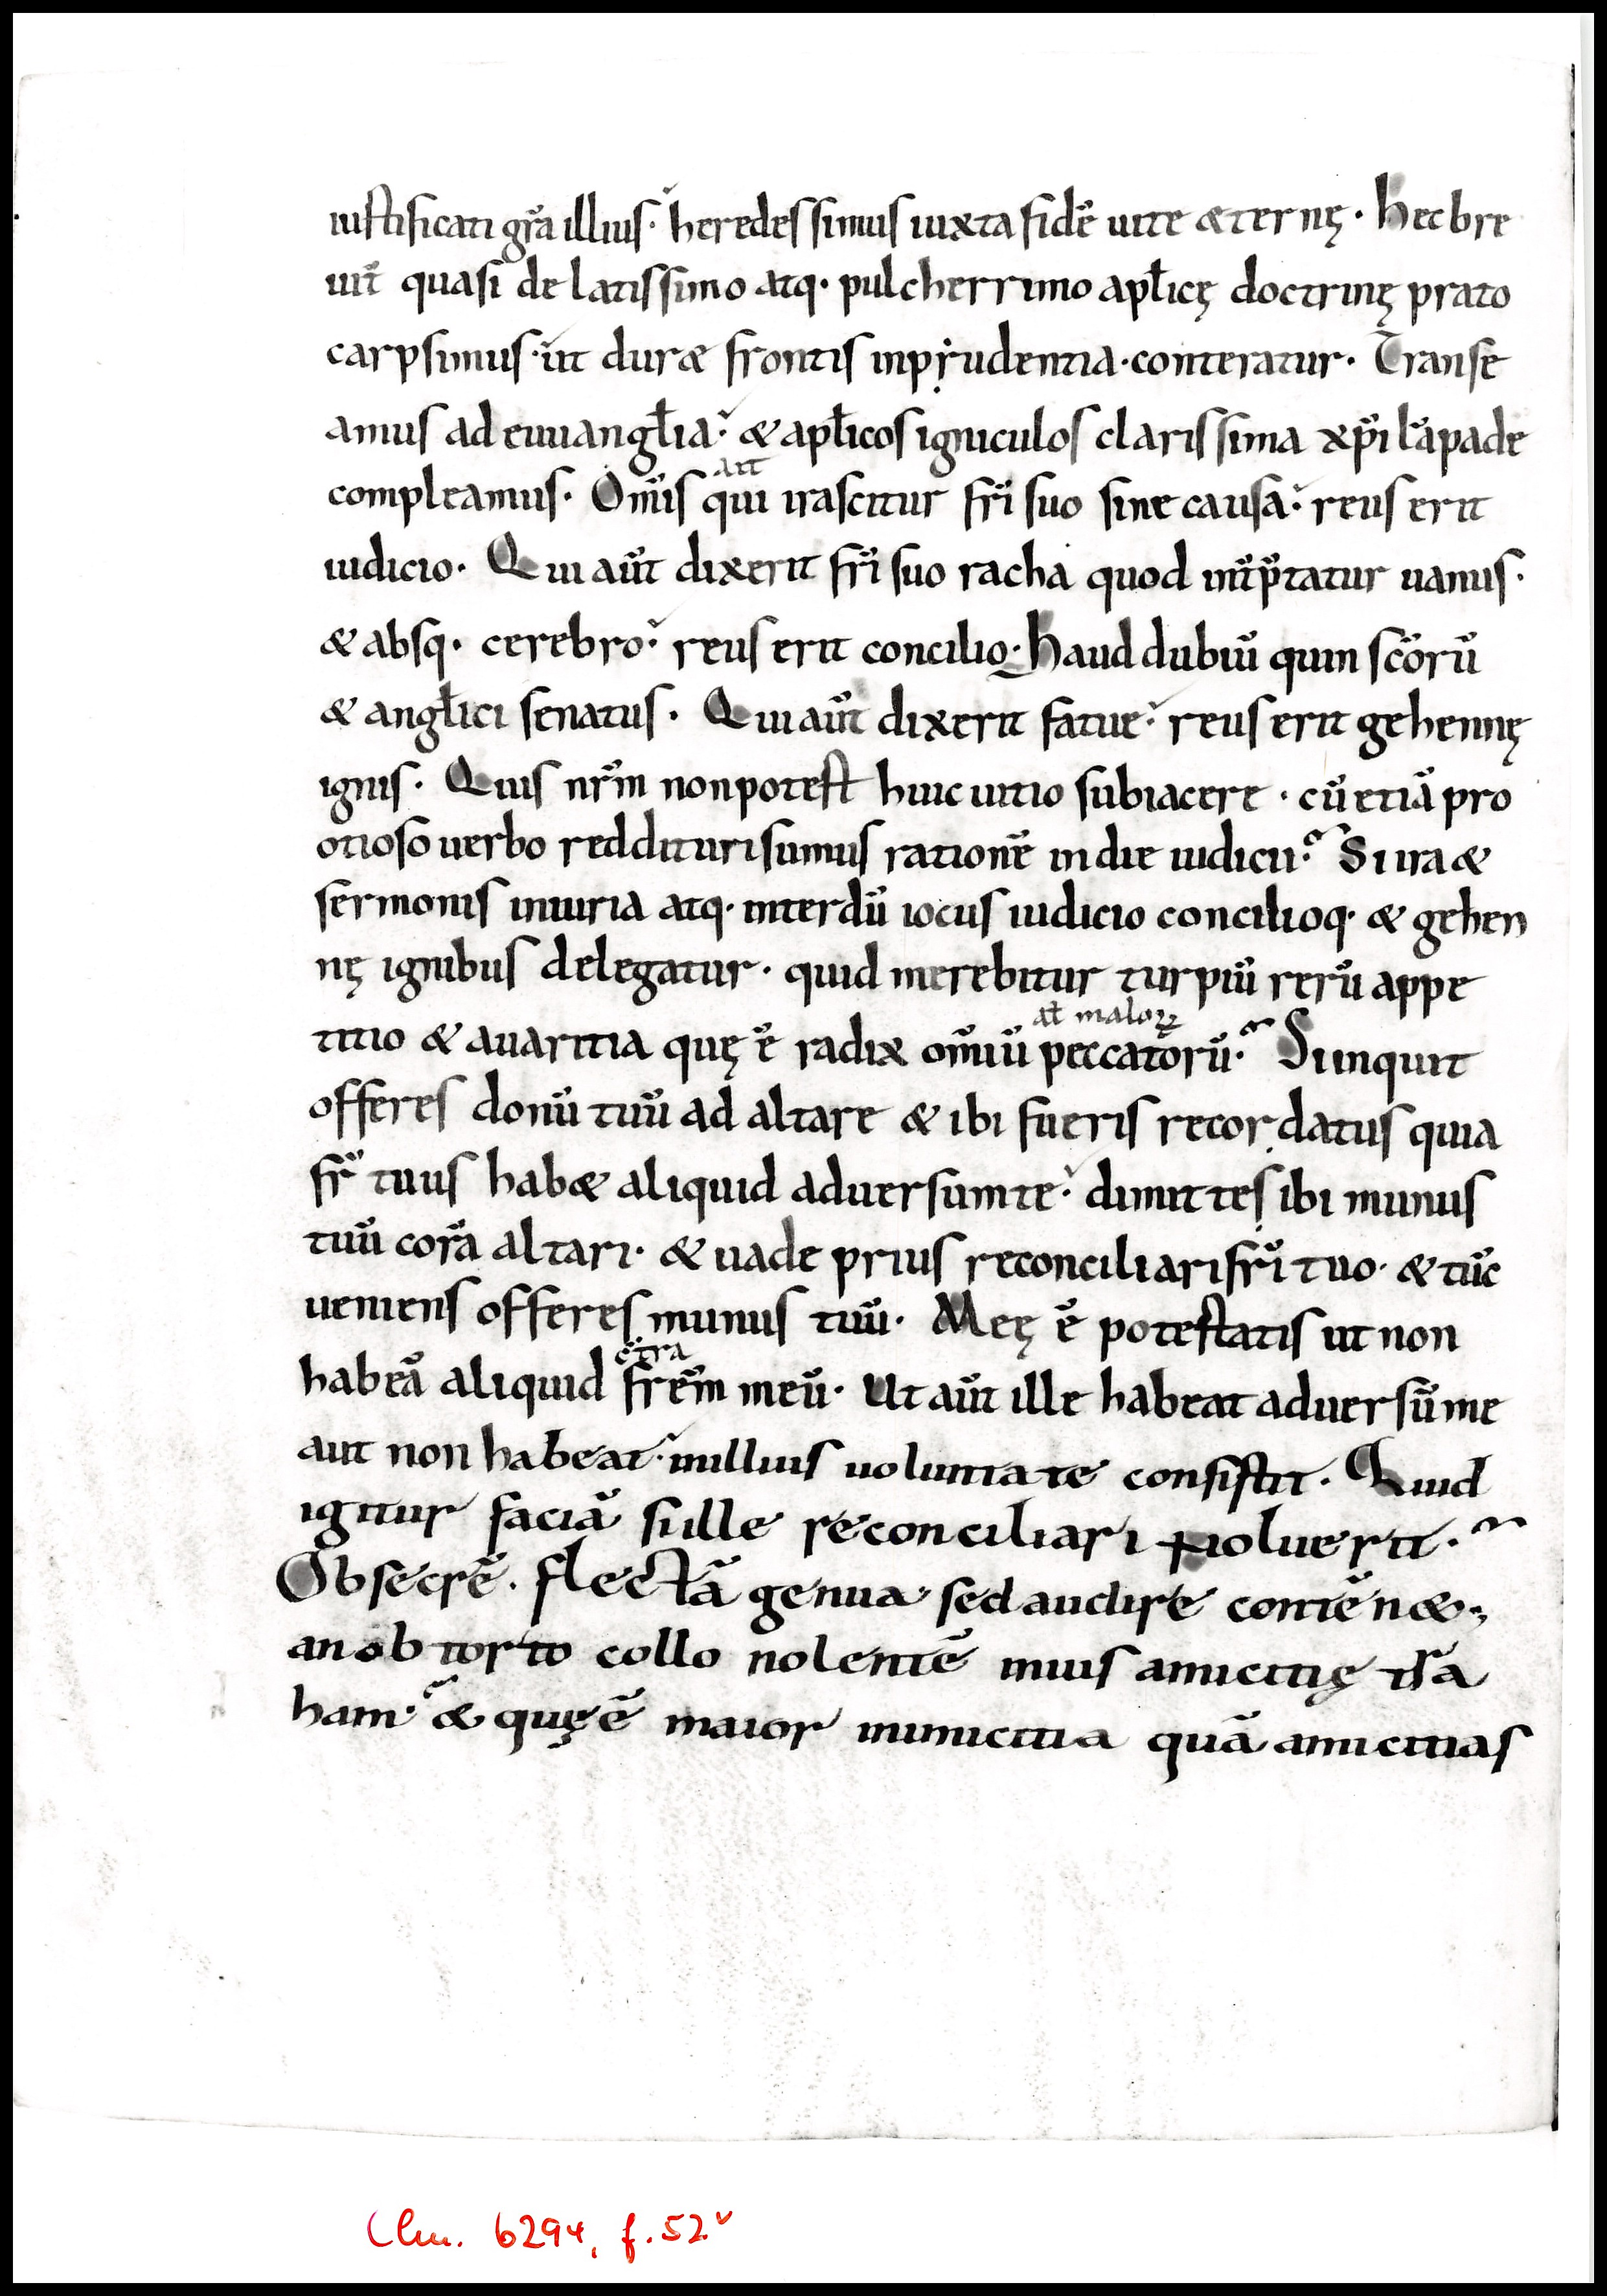 iustificati gr̃a illius· heredes simus iuxta fidẽ uite æternę· Hec bre
uit̃ quasi de latissimo atq· pulcherrimo apl̃icę doctrinę prato
carpsimus· ut duræ frontis inprudentia· conteratur· Transe
amus ad euuangl̃ia· & apl̃icos igniculos clarissima xp̃i lãpade
ait
compleamus· Om̃is qui irascitur fr̃i suo sine causa· reus erit
iudicio· Qui aũt dixerit fr̃i suo racha quod int̃p̃tatur uanus·
& absq· cerebro· reus erit concilio· Haud dubiũ quin sc̃orũ
& angl̃ici senatus· Qui aũt dixerit fatue· reus erit gehennę
ignis· Quis nr̃m non potest huic uitio subiacere· cũ etiã pro
otioso uerbo reddituri sumus rationẽ in die iudicii· Si ira &
sermonis iniuria atq· interdũ iocus iudicio concilioq· & gehen
nę ignibus delegatur· quid merebitur turpiũ rerũ appe
at̃ maloꝝ
titio & auaritia quę ẽ radix om̃iũ peccatorũ· Si inquit
offeres donũ tuũ ad altare & ibi fueris recordatus quia
fr̃ tuus habæ aliquid aduersum te· dimittes ibi munus
tuũ corã altari· & uade prius reconciliari fr̃i tuo· & tũc
ueniens offeres munus tuũ· Meę ẽ potestatis ut non
c̃tra
habeã aliquid fr̃em meũ· Ut aũt ille habeat aduersũ me
aut non habeat· in illius uoluntate consistit· Quid
igitur faciã si ille reconciliari noluerit·
Obsecrẽ· flectã genua· sed audire contẽn&·,
an obtorto collo nolentẽ in ius amicitię tr̃a
ham· & quę ẽ maior inimicitia quã amicitias
Clm. 6294, f. 52v